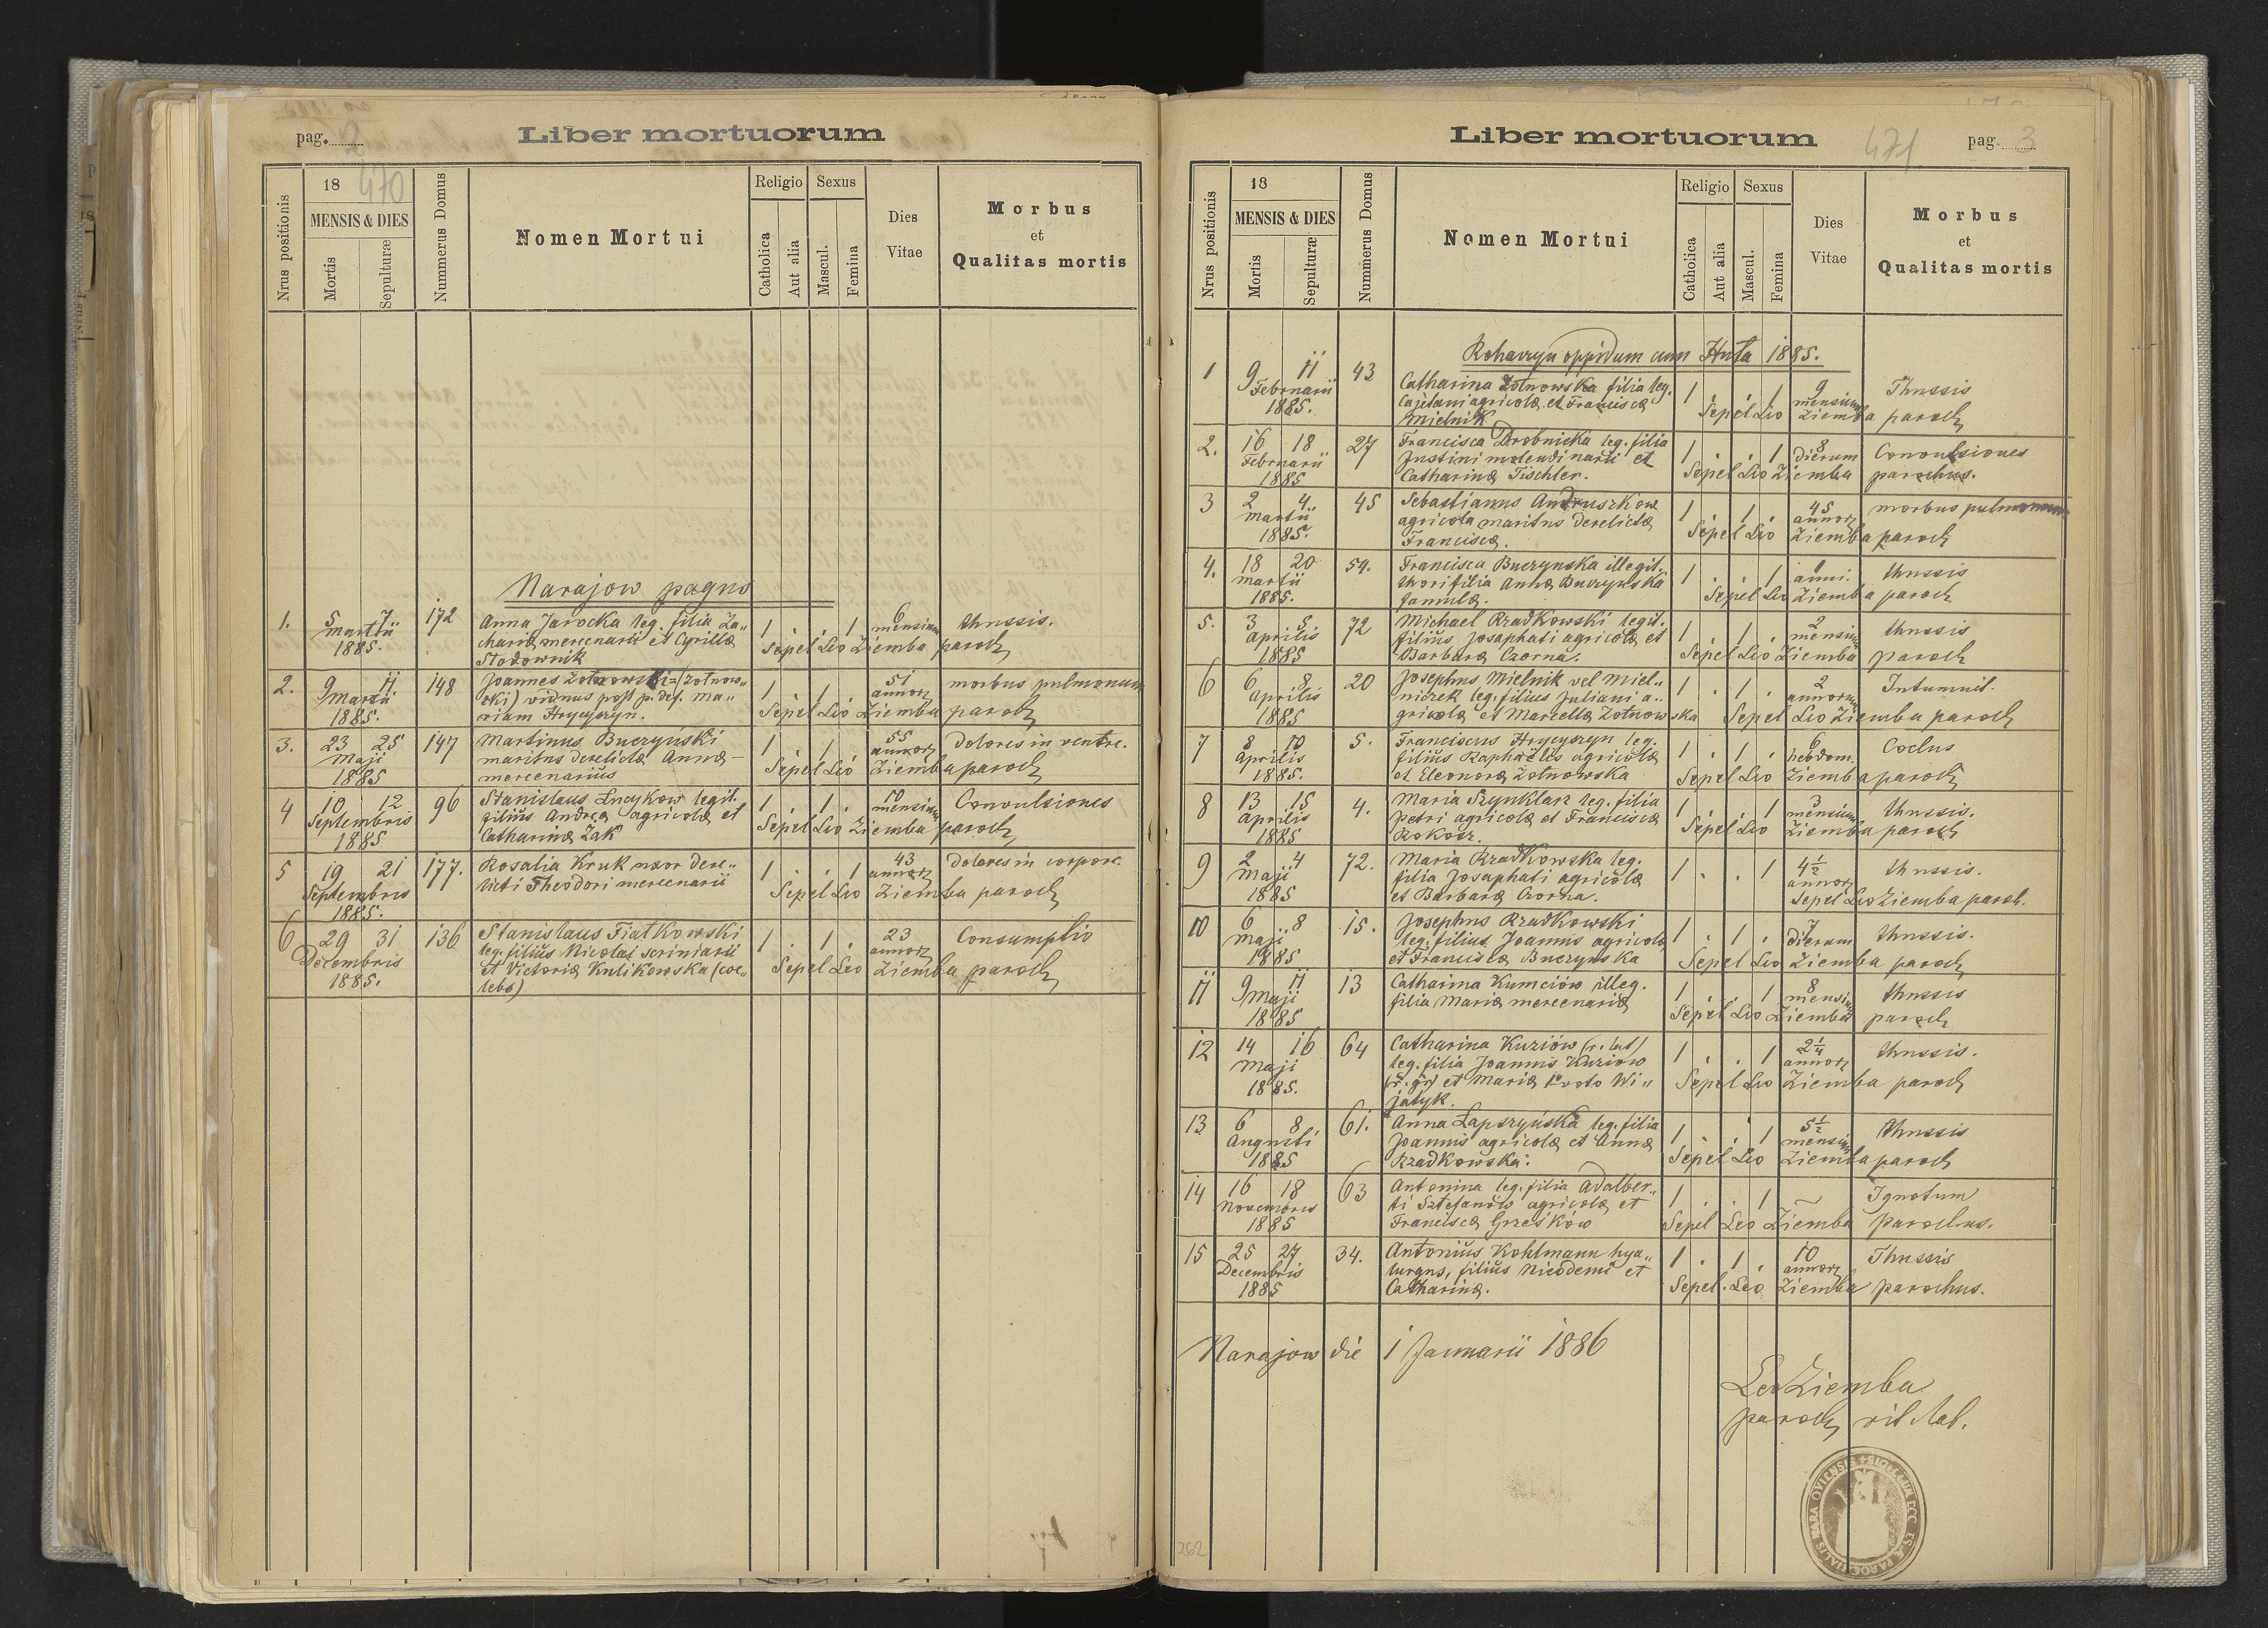 pag. 2
Liber mortuorum
Nrus positionis
18 470
MENSIS & DIES
Mortis
Sepulturæ
Nummerus Domus
Nomen Mortui
Religio
Catholica
Aut alia
Sexus
Mascul.
Femina
Dies
Vitae
Morbus
et
Qualitas mortis
Narajow pagus
1. 5 7 172 Anna Jarocka leg. filia Za„ 1 . . 1 6 thussis.
Martii chariæ mercenarii et Cyrillæ mensium
1885. Stodownik Sepel Leo Ziemba paroch
2. 9 11 148 Joannes Zotnowski (Zotnow„ 1 . 1 . 51 morbus pulmonum
Martii ski) viduus post p. def. Ma„ annor
1885. riam Hrycyszyn. Sepel Leo Ziemba paroch
3. 23 25 147 Martinus Buczynski 1 . 1 . 55 Dolores in ventre.
Maji maritus derelictæ Annæ – annor
1885 mercenarius Sepel Leo Ziemba paroch
4 10 12 96 Stanislaus Łucykow legit. 1 . 1 . 10 Convulsiones
Septembris filius Andreæ agricolæ et mensium
1885 Catharinæ Żak Sepel Leo Ziemba paroch
5 19 21 177. Rosalia Kruk uxor dere„ 1 . . 1 43 Dolores in corpore.
Septembris licti Theodori mercenarii annor
1885. Sepel Leo Ziemba paroch
6 29 31 136 Stanislaus Fiatkowski 1 . 1 . 23 Consumptio
Decembris leg. filius Nicolai scriniarii annor
1885. et Victoriæ Kulikowska (coe„ Sepel Leo Ziemba paroch
lebs)
Liber mortuorum
471
pag. 3
Nrus positionis
18
MENSIS & DIES
Mortis
Sepulturæ
Nummerus Domus
Nomen Mortui
Religio
Catholica
Aut alia
Sexus
Mascul.
Femina
Dies
Vitae
Morbus
et
Qualitas mortis
Rohaczyn oppidum cum Huta 1885.
1 9 11 43 Catharina Zotnowska filia leg. 1 . . 1 9 Thussis
Februarii Cajetani agricolæ et Franciscæ mensium
1885. Mielnik Sepel Leo Ziemba paroch
2. 16 18 27 Francisca Drobniska leg. filia 1 . . 1 8 Convulsiones
Februarii Justini molendinarii et dierum
1885 Catharinæ Tischler. Sepel Leo Ziemba parochus.
3 2 4 45 Sebastianus Andruszkow 1 . 1 . 45 morbus pulmonum
Martii agricola maritus derelictæ annor
1885. Franciscæ. Sepel Leo Ziemba paroch
4. 18 20 54. Francisca Buczynska illegit. 1 . . 1 1 thussis
Martii thori filia Annæ Buczynska anni.
1885. famulæ. Sepel Leo Ziemba paroch
5. 3 5 72 Michael Rzadkowski legit. 1 . 1 . 2 thussis
Aprilis filius Josaphati agricolæ et mensium
1885 Barbaræ Czorna. Sepel Leo Ziemba paroch
6 6 8 20 Josephus Mielnik vel Miel„ 1 . 1 . 2 Intumuit.
Aprilis niczek leg. filius Juliani a„ annorum
1885 gricolæ et Marcellæ Zotnowska Sepel Leo Ziemba paroch
7 8 10 5. Franciscus Hrycyszyn leg. 1 . 1 . 6 Coctus
Aprilis filius Raphaelis agricolæ hebdom.
1885. et Eleonoræ Zotnowska Sepel Leo Ziemba paroch
8 13 15 4. Maria Szynklarz leg. filia 1 . . 1 3 thussis.
Aprilis Petri agricolæ et Franciscæ mensium
1885 Rokosz. Sepel Leo Ziemba paroch
9 2 4 72. Maria Rzadkowska leg. 1 . . 1 4½ thussis.
Maji filia Josaphati agricolæ annor
1885 et Barbaræ Czorna. Sepel Leo Ziemba paroch.
10 6 8 15. Josephus Rzadkowski 1 . 1 . 7 thussis.
Maji leg. filius Joannis agricolæ dierum
1885 et Franciscæ Buczynska Sepel Leo Ziemba paroch
11 9 11 13 Catharina Kumciów illeg. 1 . . 1 8 thussis
Maji filia Mariæ mercenariæ mensium
1885 Sepel Leo Ziemba paroch
12 14 16 64 Catharina Kuziów (r. lat) 1 . . 1 2¼ thussis.
Maji leg. filia Joannis Kuziow annor
1885. (r. gr) et Mariæ 1º voto Wi„ Sepel Leo Ziemba paroch
jatyk.
13 6 8 61. Anna Łapszyńska leg. filia 1 . . 1 5½ thussis
Augusti Joannis agricolæ et Annæ mensium
1885 Rzadkowska. Sepel Leo Ziemba paroch
14 16 18 63 Antonina leg. filia Adalber„ 1 . . 1 – Ignotum
Novembris ti Sztefanów agricolæ et
1885 Franciscæ Grześków Sepel Leo Ziemba parochus.
15 25 27 34. Antonius Kohlmann hya„ 1 . 1 . 10 Thussis
Decembris lurgus, filius Nicodemi et annor
1885 Catharinæ. Sepel. Leo Ziemba parochus.
Narajow die 1 Januarii 1886
Leo Ziemba
paroch rit. lat.
262